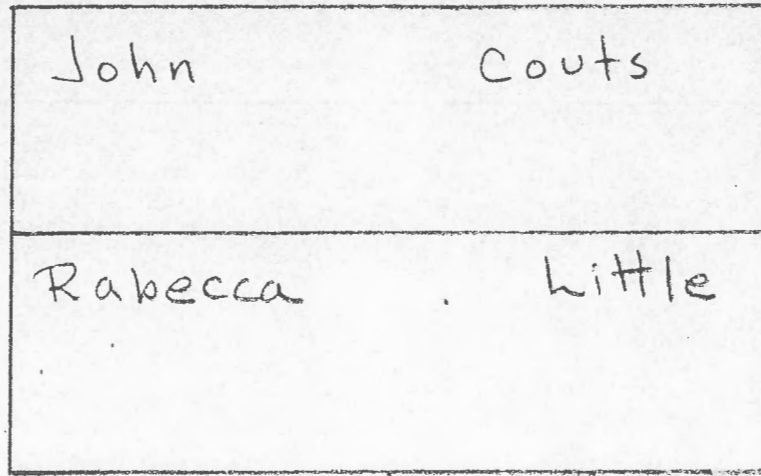 John Couts
Rabecca Little